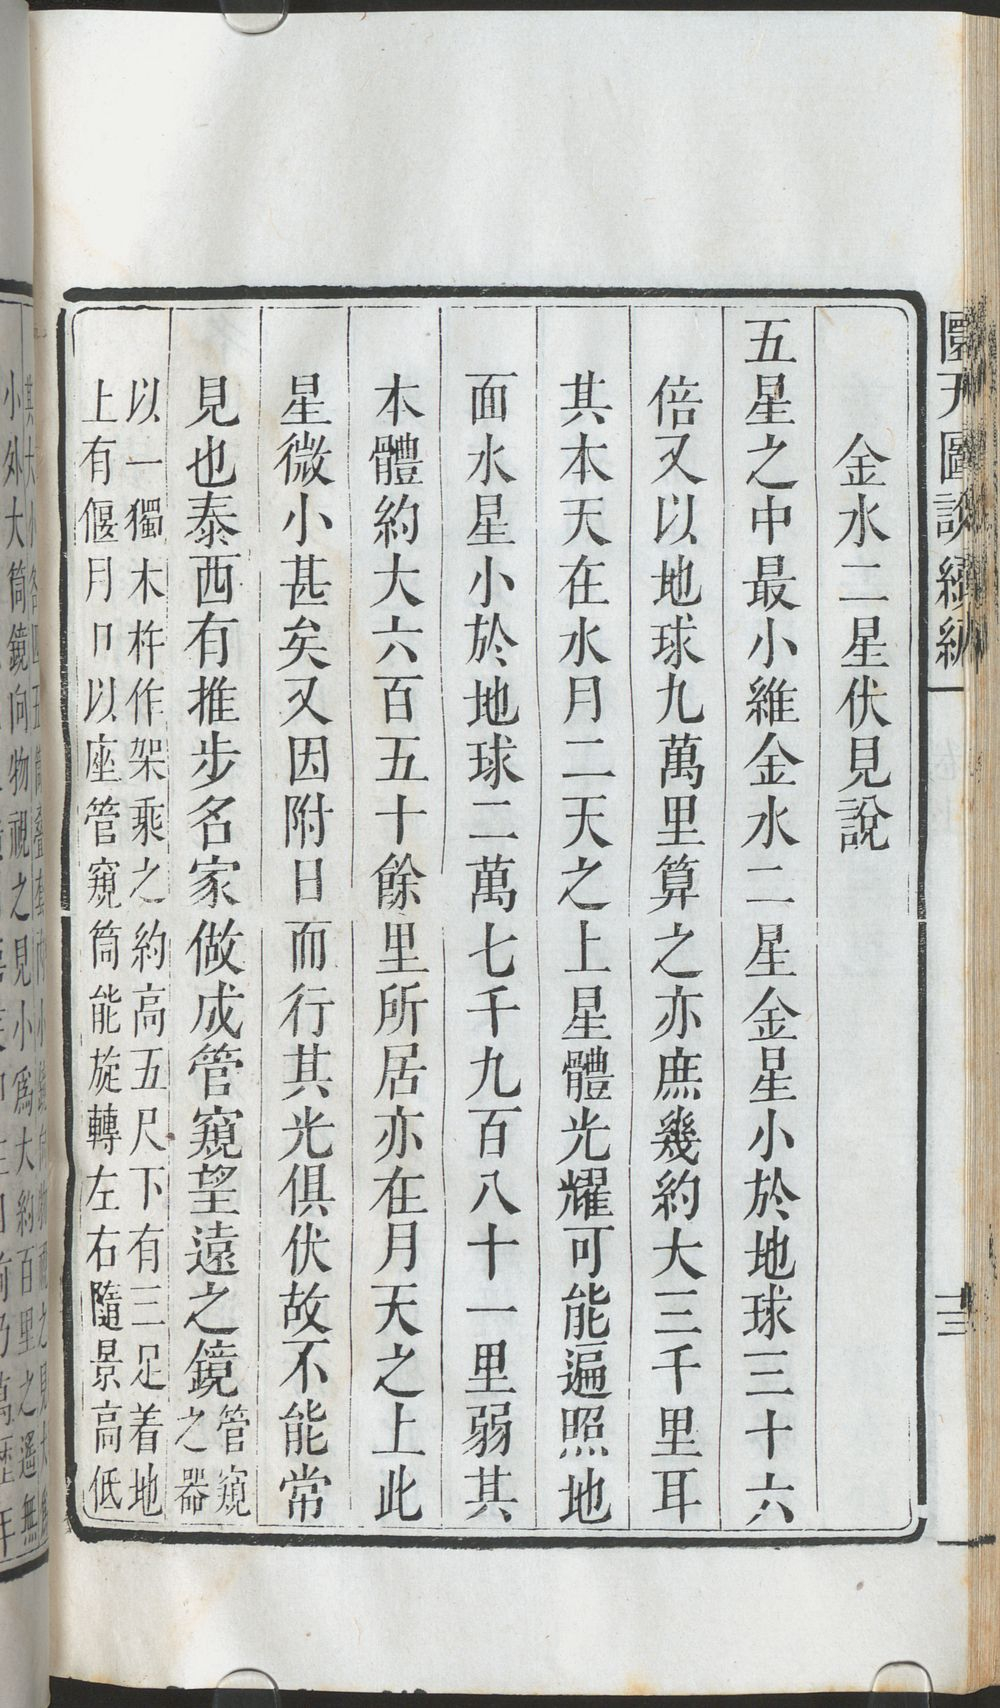 圜天圖說續編
十三
金水二星伏見說
五星之中最小維金水二星金星小於地球三十六
倍又以地球九萬里算之亦庶幾約大三千里耳
其本天在水月二天之上星體光耀可能遍照地
面水星小於地球二萬七千九百八十一里弱其
本體約大六百五十餘里所居亦在月天之上此
星微小甚矣又因附日而行其光俱伏故不能常
見也泰西有推步名家做成管窺望遠之鏡管窺
之器
以一獨木杵作架乘之約高五尺下有三足着地
上有偃月卩以座管窺筒能旋轉左右隨景高低
小外大筒鏡向物視之見小為大約百里之遙無